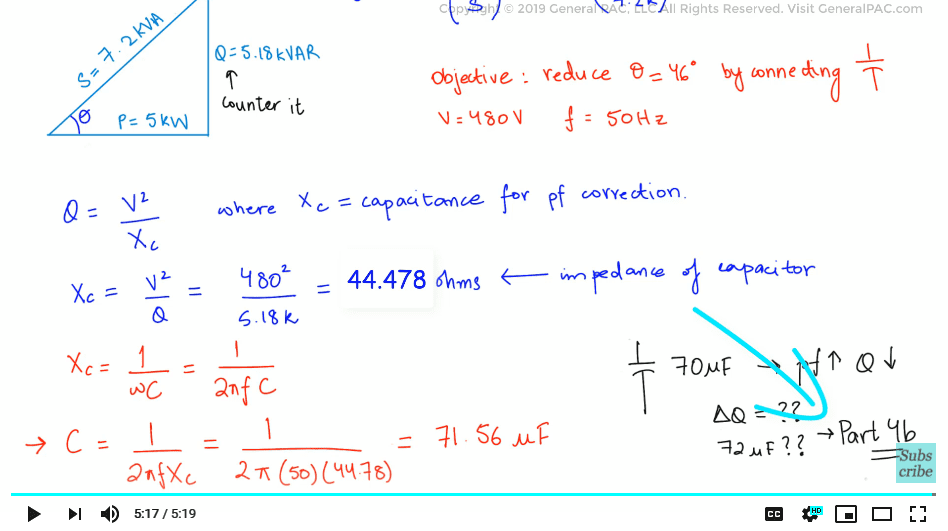 Copyright © 2019 General PAC, LLC.All Rights Reserved. Visit GeneralPAC.com
S = 7.2KVA
Q = 5.18KVAR
↑
counter it
θ
P = 5KW
objective : reduce θ = 46° by connecting
V = 480V f = 50Hz
Q = V² / Xc where Xc = capacitance for pf correction.
Xc = V² / Q = 480² / 5.18K = 44.478 ohms ← impedance of capacitor
Xc = 1 / ωC = 1 / 2πf C
70μF → pf↑ Q↓
ΔQ = ??
72μF ?? → Part 4b
→ C = 1 / 2πfXc = 1 / 2π(50)(44.78) = 71.56 μF
Subs
cribe
5:17 / 5:19
CC
HD